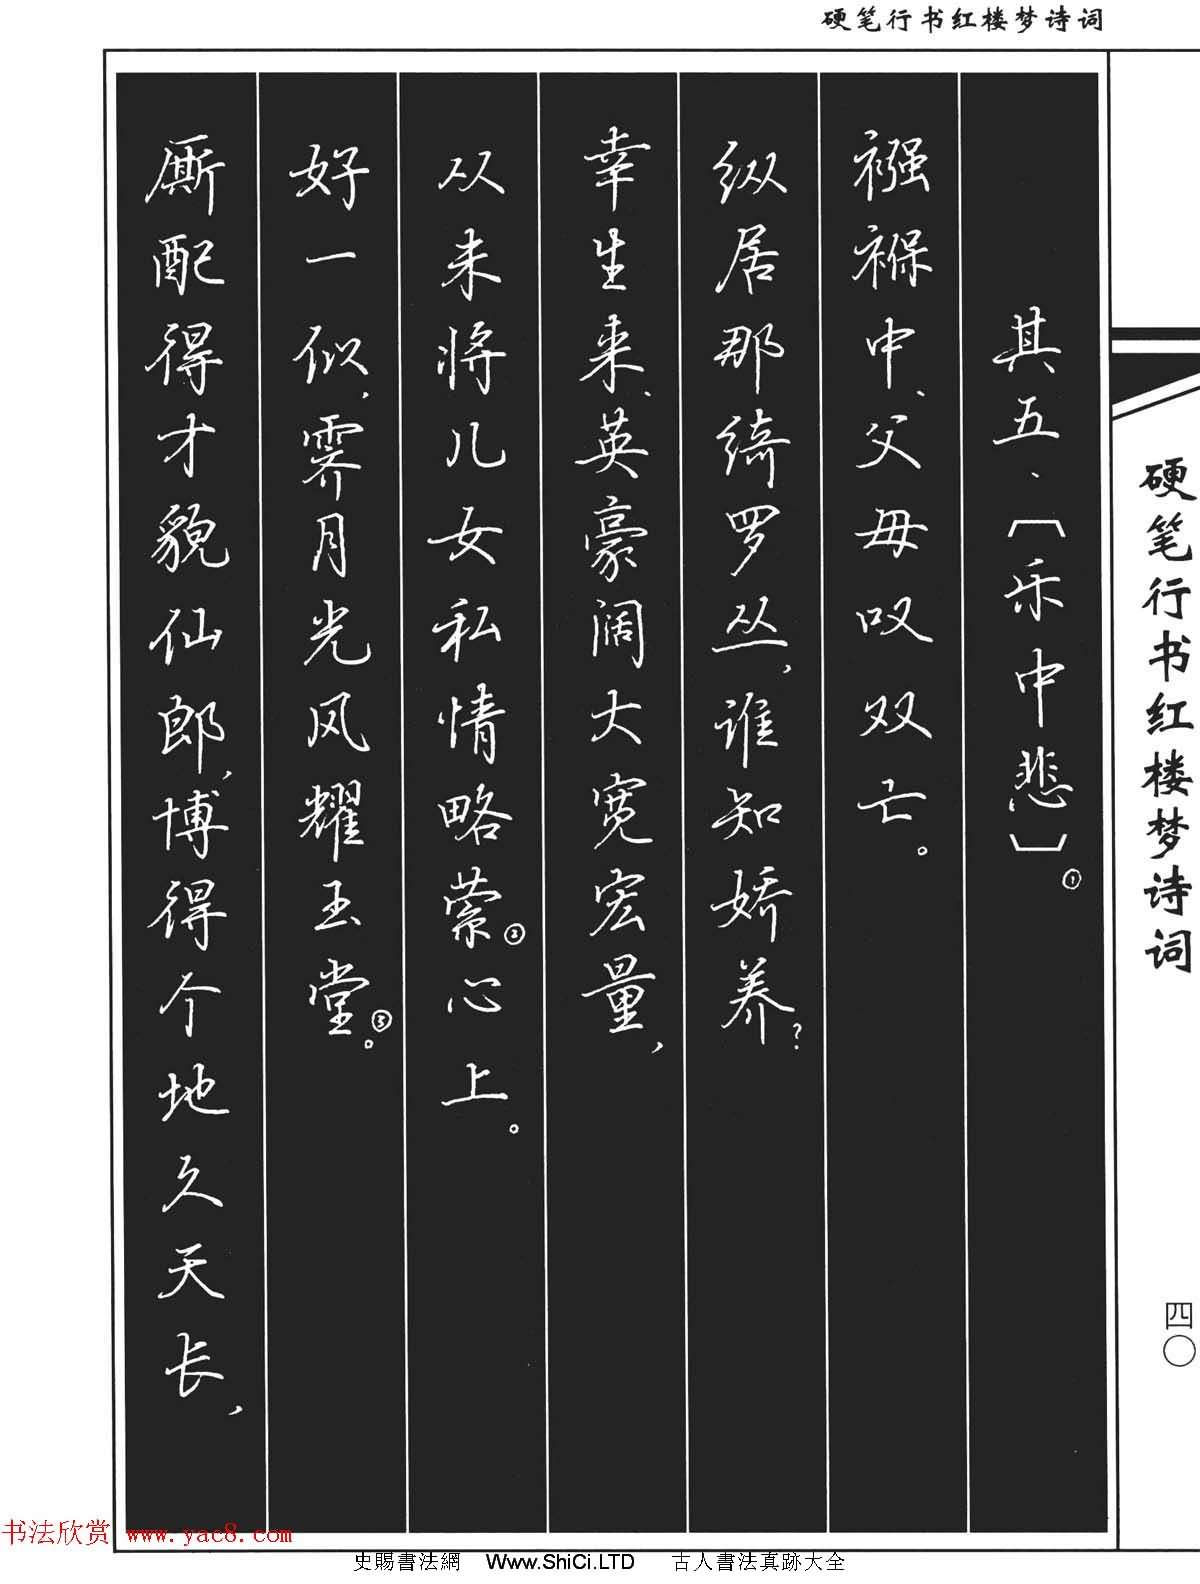 硬笔行书红楼梦诗词
其五、〔乐中悲〕①
襁褓中、父母叹双亡。
纵居那绮罗丛，谁知娇养？
幸生来、英豪阔大宽宏量，
从未将儿女私情略萦②心上。
好一似，霁月光风耀玉堂③。
厮配得才貌仙郎，博得个地久天长，
硬笔行书红楼梦诗词
四〇
书法欣赏 www.yac8.com
史賜書法網 Www.ShiCi.LTD 古人書法真跡大全